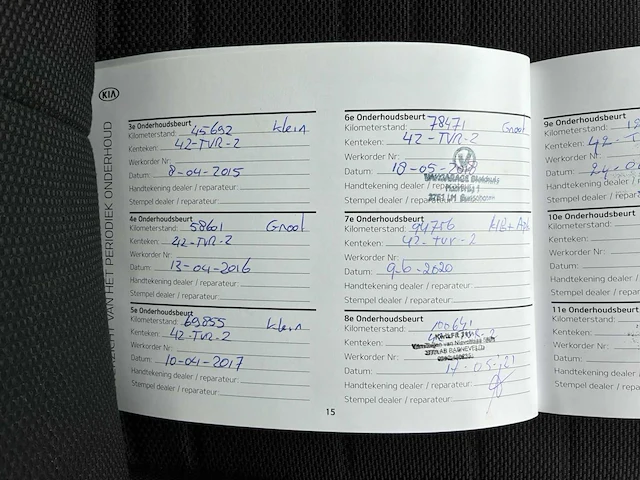 KIA
VAN HET PERIODIEK ONDERHOUD
3e Onderhoudsbeurt
Kilometerstand: 45692 klein
Kenteken: 42-TVR-2
Werkorder Nr:
Datum: 8-04-2015
Handtekening dealer / reparateur:
Stempel dealer / reparateur:
4e Onderhoudsbeurt
Kilometerstand: 58601 Groot
Kenteken: 42-TVR-2
Werkorder Nr:
Datum: 13-04-2016
Handtekening dealer / reparateur:
Stempel dealer / reparateur:
5e Onderhoudsbeurt
Kilometerstand: 69855 klein
Kenteken: 42-TVR-2
Werkorder Nr:
Datum: 10-04-2017
Handtekening dealer / reparateur:
Stempel dealer / reparateur:
6e Onderhoudsbeurt
Kilometerstand: 78471 Groot
Kenteken: 42-TVR-2
Werkorder Nr:
Datum: 18-05-
Handtekening dealer / reparateur:
Stempel dealer / reparateur:
7e Onderhoudsbeurt
Kilometerstand: 94756
Kenteken: 42-TVR-2
Werkorder Nr:
Datum: 9-6-2020
Handtekening dealer / reparateur:
Stempel dealer / reparateur:
8e Onderhoudsbeurt
Kilometerstand: 100641
Kenteken:
Werkorder Nr:
BARNEVELD
Datum: 17-05-21
Handtekening dealer / reparateur:
Stempel dealer / reparateur:
15
9e Onderhoudsbeurt
Kilometerstand:
Kenteken:
Werkorder Nr:
Datum:
Handtekening
Stempel dealer
10e Onderhoudsb
Kilometerstand:
Kenteken:
Werkorder Nr:
Datum:
Handtekening deal
Stempel dealer / r
11e Onderhoud
Kilometerstand:
Kenteken:
Werkorder Nr:
Datum:
Handtekening
Stempel dealer